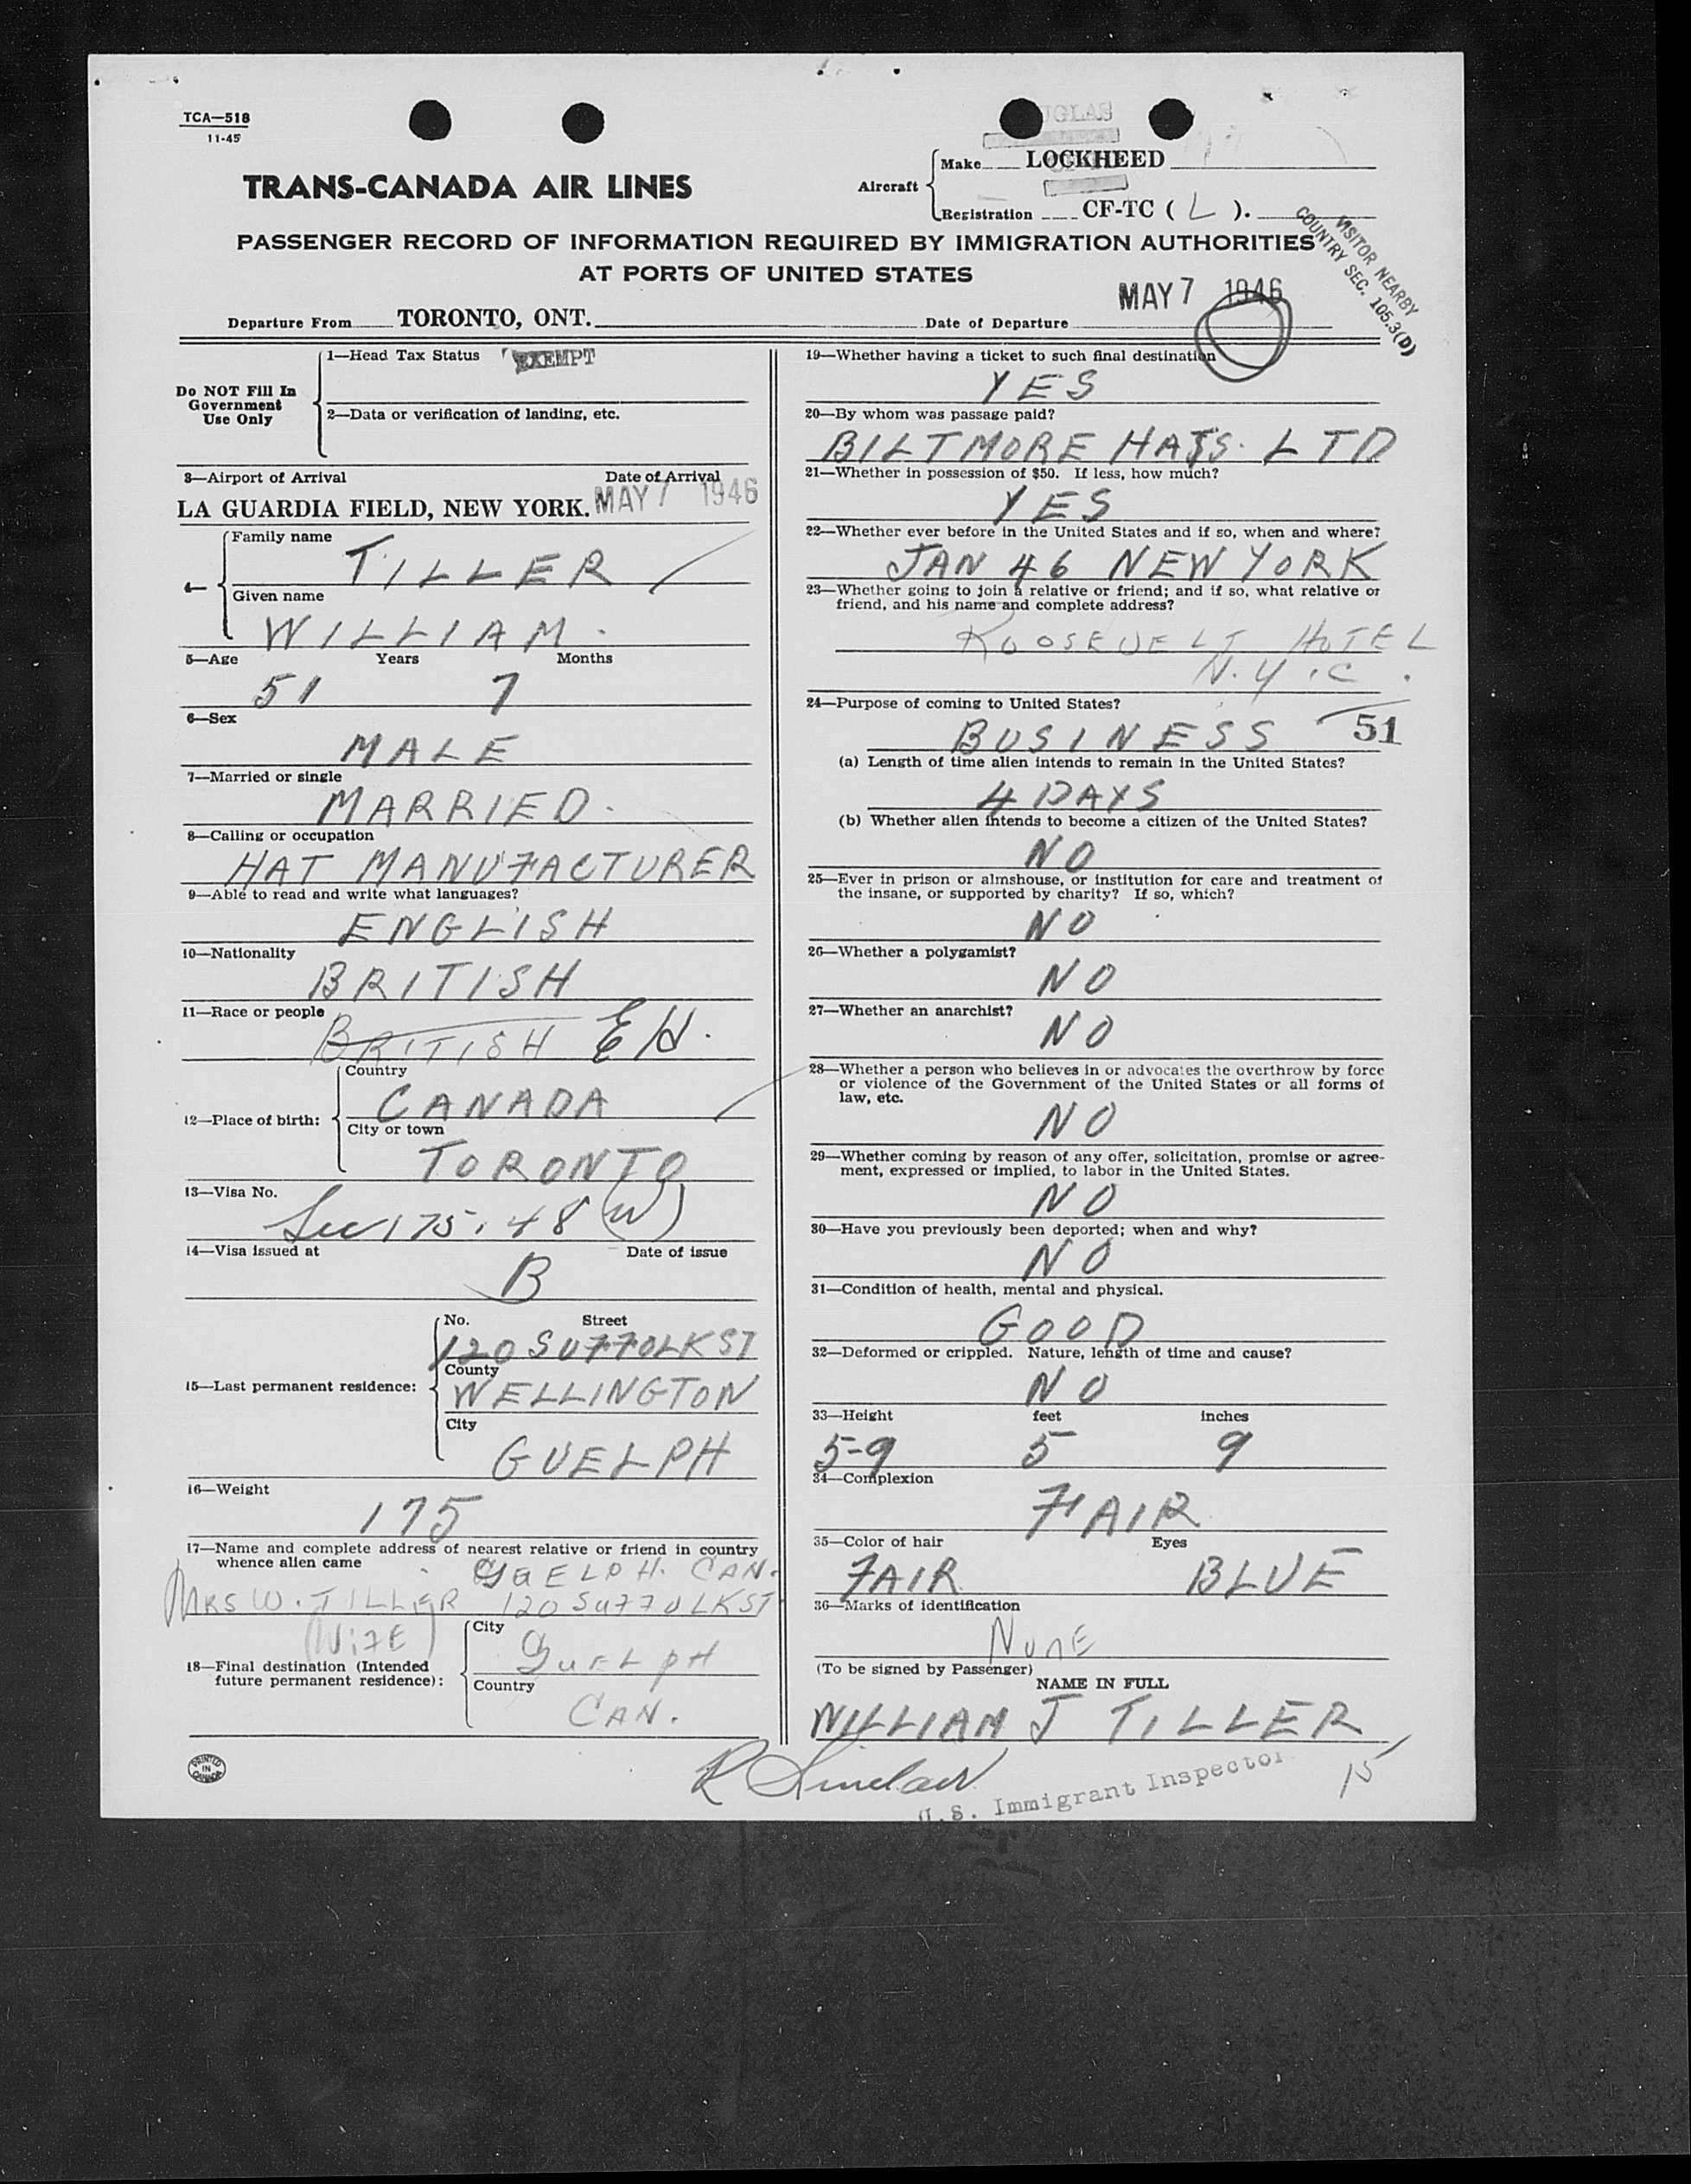 TCA—518
11-45
TRANS-CANADA AIR LINES
Aircraft
Make LOCKHEED
Registration CF-TC ( L ).
PASSENGER RECORD OF INFORMATION REQUIRED BY IMMIGRATION AUTHORITIES
AT PORTS OF UNITED STATES
VISITOR NEARBY
COUNTRY SEC. 105.3(D)
MAY 7 1946
Departure From TORONTO, ONT. Date of Departure
Do NOT Fill In
Government
Use Only
1—Head Tax Status EXEMPT
2—Data or verification of landing, etc.
3—Airport of Arrival Date of Arrival
LA GUARDIA FIELD, NEW YORK. MAY 7 1946
4—
Family name
TILLER
Given name
WILLIAM.
5—Age Years Months
51 7
6—Sex
MALE
7—Married or single
MARRIED.
8—Calling or occupation
HAT MANUFACTURER
9—Able to read and write what languages?
ENGLISH
10—Nationality
BRITISH
11—Race or people
BRITISH
12—Place of birth:
Country
CANADA
City or town
TORONTO
13—Visa No.
Sec 175.48 (W)
14—Visa issued at Date of issue
B
15—Last permanent residence:
No. Street
120 SUFFOLK ST
County
WELLINGTON
City
GUELPH
16—Weight
175
17—Name and complete address of nearest relative or friend in country
whence alien came
GUELPH. CAN.
MRS W. TILLER 120 SUFFOLK ST
(WIFE)
18—Final destination (Intended
future permanent residence):
City
GUELPH
Country
CAN.
PRINTED
IN
CANADA
19—Whether having a ticket to such final destination
YES
20—By whom was passage paid?
BILTMORE HATS. LTD
21—Whether in possession of $50. If less, how much?
YES
22—Whether ever before in the United States and if so, when and where?
JAN 46 NEW YORK
23—Whether going to join a relative or friend; and if so, what relative or
friend, and his name and complete address?
ROOSEVELT HOTEL
N.Y.C.
24—Purpose of coming to United States?
BUSINESS 51
(a) Length of time alien intends to remain in the United States?
4 DAYS
(b) Whether alien intends to become a citizen of the United States?
NO
25—Ever in prison or almshouse, or institution for care and treatment of
the insane, or supported by charity? If so, which?
NO
26—Whether a polygamist?
NO
27—Whether an anarchist?
NO
28—Whether a person who believes in or advocates the overthrow by force
or violence of the Government of the United States or all forms of
law, etc.
NO
29—Whether coming by reason of any offer, solicitation, promise or agree-
ment, expressed or implied, to labor in the United States.
NO
30—Have you previously been deported; when and why?
NO
31—Condition of health, mental and physical.
GOOD
32—Deformed or crippled. Nature, length of time and cause?
NO
33—Height feet inches
5-9 5 9
34—Complexion
FAIR
35—Color of hair Eyes
FAIR BLUE
36—Marks of identification
NONE
(To be signed by Passenger)
NAME IN FULL
WILLIAM J TILLER
R Sinclair
U.S. Immigrant Inspector
15